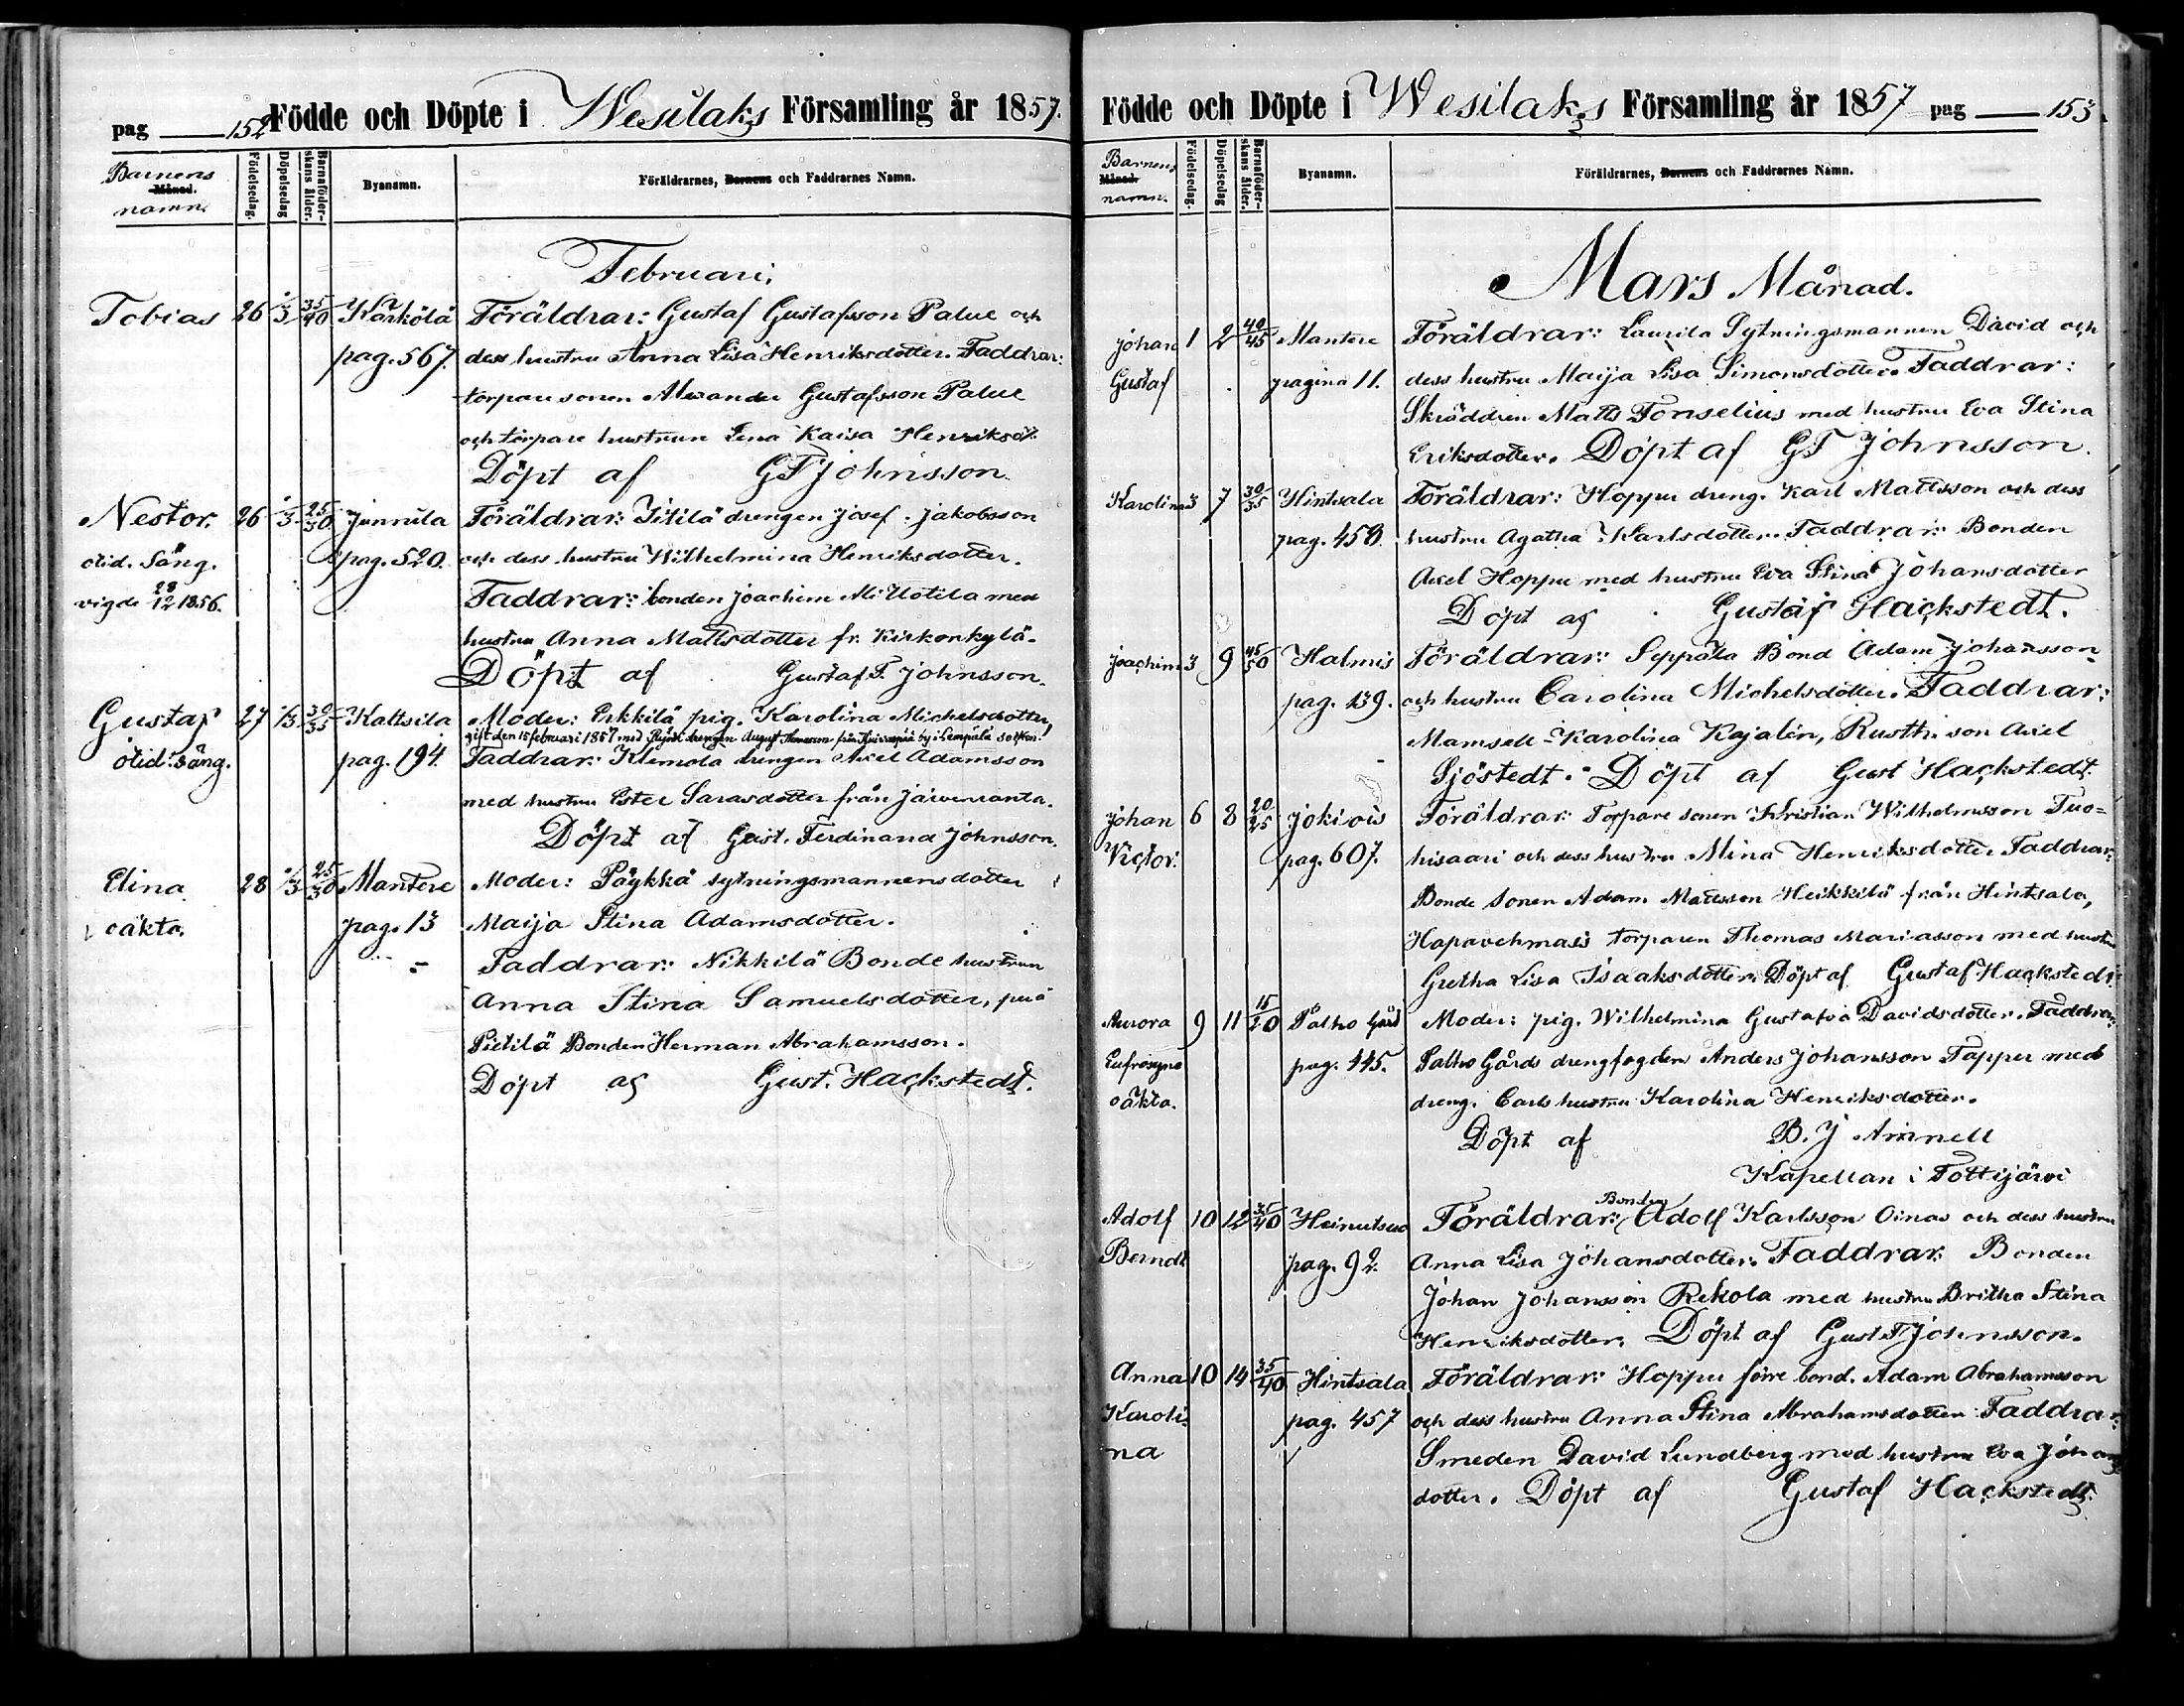 pag 152 Födde och Döpte i Wesilaks Församling år 1857.
Barnens
Månad.
namn.
Födelsedag.
Döpelsedag
Barnaföder-
skans ålder.
Byanamn.
Föräldrarnes, Barnens och Faddrarnes Namn.
Februari;
Tobias 26 1/3 35/40 Karkölä Föräldrar: Gustaf Gustafsson Palue och
pag. 567. dess hustru Anna Lisa Henriksdotter. Faddrar:
torpare sonen Alexander Gustafsson Palue
och torpare hustrun Lena Kaisa Henriksd:
Döpt af GF Johnsson.
Nestor. 26 1/3 25/30 Junnila Föräldrar: Pitilä drengen Josef Jakobsson
otid. Säng. pag. 520. och dess hustru Wilhelmina Henriksdotter.
vigde 28/12 1856. Faddrar: bonden Joachim Ali Uotila med
hustru Anna Mattsdotter fr. Kirkonkylä.
Döpt af Gustaf F. Johnsson.
Gustaf 27 1/3 30/35 Kaltsila Moder: Erkkilä pig. Karolina Michelsdotter,
gift den 15 februari 1857 med drengen August från by i Lempälä socken.
otid: säng. pag. 194. Faddrar: Klemola drengen Axel Adamsson
med hustru Ester Sarasdotter från Järvenranta.
Döpt af Gust. Ferdinand Johnsson.
Elina 28 1/3 25/30 Mantere Moder: Päykkä sytningsmannens dotter
oäkta. pag. 13 Maija Stina Adamsdotter.
Faddrar: Nikkilä Bonde hustrun
Anna Stina Samuelsdotter, på
Pietilä Bonden Herman Abrahamsson.
Döpt af Gust. Hackstedt.
Födde och Döpte i Wesilaks Församling år 1857 pag 153.
Barnens
Månad.
namn.
Födelsedag.
Döpelsedag
Barnaföder-
skans ålder.
Byanamn.
Föräldrarnes, Barnens och Faddrarnes Namn.
Mars Månad.
Johan 1 2 40/45 Mantere Föräldrar: Laurila Sytningsmannen David och
Gustaf pagina 11. dess hustru Maija Lisa Simonsdotter. Faddrar:
Skräddren Matts Fonselius med hustru Eva Stina
Eriksdotter. Döpt af GF Johnsson.
Karolina 3 7 30/35 Hintsala Föräldrar: Hoppu dreng. Karl Mattsson och dess
pag. 458. hustru Agatha Karlsdotter. Faddrar: Bonden
Axel Hoppu med hustru Eva Stina Johansdotter
Döpt af Gustaf Hackstedt.
Joachim 3 9 45/50 Halmis Föräldrar: Seppälä Bond Adam Johansson
pag. 139. och hustru Carolina Michelsdotter. Faddrar:
Mamsell Karolina Kajalén, Rusth. son Axel
Sjöstedt. Döpt af Gust Hackstedt.
Johan 6 8 20/25 Jokiois Föräldrar: Torpare sonen Kristian Wilhelmsson Tuo=
Victor. pag. 607. hisaari och dess hustru Mina Henriksdotter Faddrar:
Bonde Sonen Adam Mattsson Heikkilä från Hintsala,
Haparehmais torparen Thomas Mariasson med hustru
Gretha Lisa Isaaksdotter. Döpt af Gustaf Hackstedt
Aurora 9 11 15/20 Palho Gård Moder: pig. Wilhelmina Gustafva Davidsdotter. Faddrar:
Eufrosyne pag. 445. Palho Gårds drengfogden Anders Johansson Tapper med
oäkta. dreng. Carls hustru Karolina Henriksdotter.
Döpt af B. J Arinell
Kapellan i Tottijärvi
Bonden
Adolf 10 12 35/40 Heinutsuo Föräldrar: Adolf Karlsson Oinas och dess hustru
Berndt pag. 92. Anna Lisa Johansdotter. Faddrar: Bonden
Johan Johansson Rekola med hustru Britha Stina
Henriksdotter. Döpt af Gust F Johnsson.
Anna 10 14 35/40 Hintsala Föräldrar: Hoppu förre bond. Adam Abrahamsson
Karoli- pag. 457 och dess hustru Anna Stina Abrahamsdotter Faddrar:
na Smeden David Lundberg med hustru Eva Johans
dotter. Döpt af Gustaf Hackstedt.